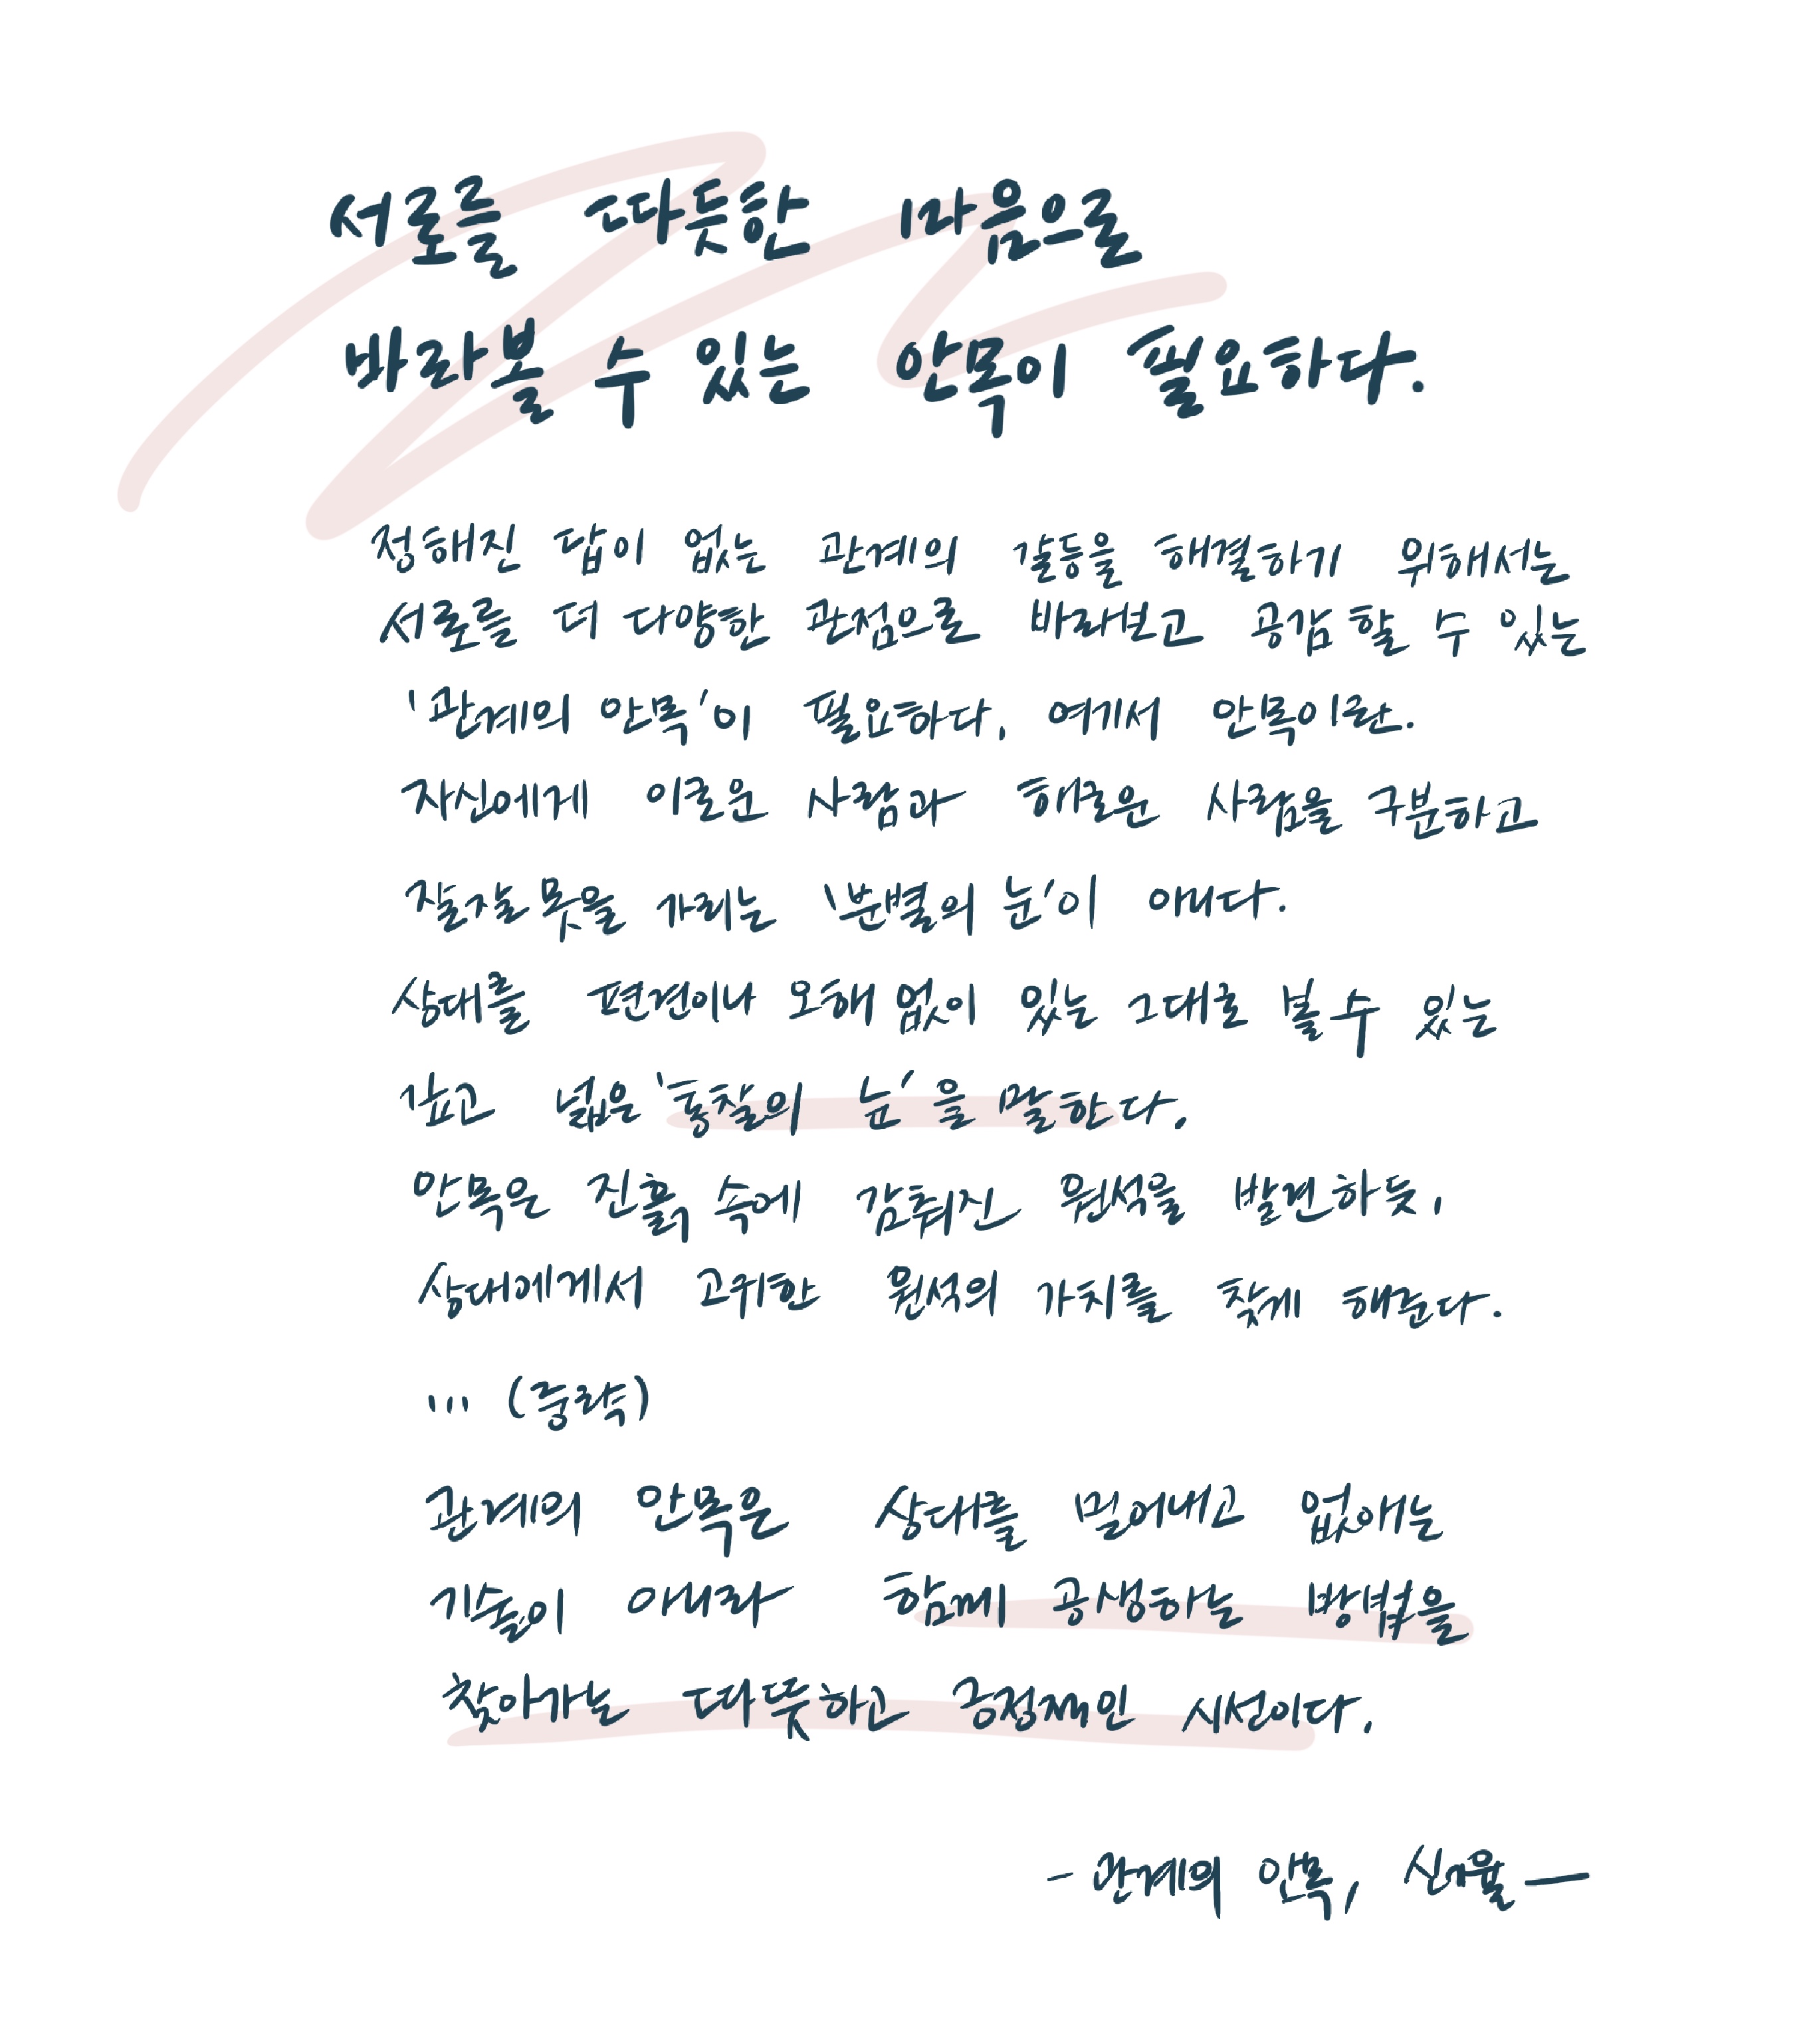 서로를 따듯한 마음으로
바라볼 수 있는 안목이 필요하다.
정해진 답이 없는 관계의 갈등을 해결하기 위해서는
서로를 더 다양한 관점으로 바라보고 공감할 수 있는
'관계의 안목'이 필요하다. 여기서 안목이란.
자신에게 이로운 사람과 해로운 사람을 구분하고
잘잘못을 가리는 '분별의 눈'이 아니다.
상대를 편견이나 오해 없이 있는 그대로 볼 수 있는
깊고 넓은 '통찰의 눈'을 말한다.
안목은 진흙 속에 감춰진 원석을 발견하듯,
상대에게서 고귀한 원석의 가치를 찾게 해준다.
... (중략)
관계의 안목은 상대를 밀어내고 없애는
기술이 아니라 함께 공생하는 방법을
찾아가는 따뜻하고 긍정적인 시선이다.
- 관계의 안목, 신기율 —